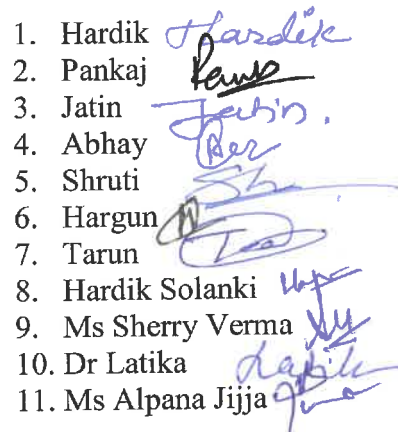 1. Hardik Hardik
2. Pankaj
3. Jatin Jatin.
4. Abhay
5. Shruti
6. Hargun
7. Tarun
8. Hardik Solanki
9. Ms Sherry Verma
10. Dr Latika Latika
11. Ms Alpana Jijja